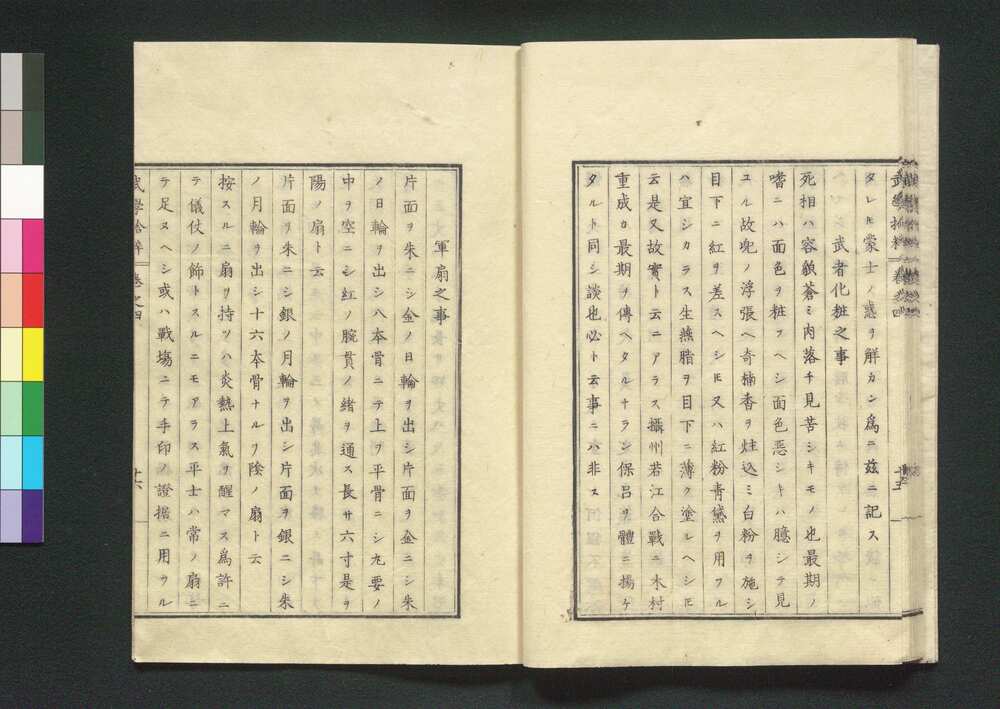 タレ𪜈蒙士ノ惑ヲ解カン爲ニ茲ニ記ス
武者化粧之事
死相ハ容貌蒼ミ肉落チ見苦シキモノ也最期ノ
嗜ニハ面色ヲ粧フヘシ面色惡シトハ臆シテ見
ユル故兜ノ浮張ヘ奇楠香ヲ炷込ミ白粉ヲ施シ
目下ニ紅ヲ差スヘシ𪜈又ハ紅粉青黛ヲ用フル
ハ宜シカラス生燕脂ヲ目下ニ薄ク塗レヘシ𪜈
云是又故實ト云ニアラス攝州若江合戰ニ木村
重成カ最期ヲ傳ヘタルナラン保呂ヲ體ニ揚ケ
タルト同シ談也必ト云事ニハ非ス
軍扇之事
片面ヲ朱ニシ金ノ日輪ヲ出シ片面ヲ金ニシ朱
ノ日輪ヲ出シ八本骨ニテ上ヲ平骨ニシ九要ノ
中ヲ空ニシ紅ノ腕貫ノ緒ヲ通ス長サ六寸是ヲ
陽ノ扇ト云
片面ヲ朱ニシ銀ノ月輪ヲ出シ片面ヲ銀ニシ朱
ノ月輪ヲ出シ十六本骨ナルヲ陰ノ扇ト云
按スルニ扇ヲ持ツハ炎熱上氣ヲ醒マス爲許ニ
テ儀仗ノ飾トスルニモアラス平士ハ常ノ扇ニ
テ足ヌヘシ或ハ戰塲ニテ手印ノ證據ニ用ヲル
卷之四
十六